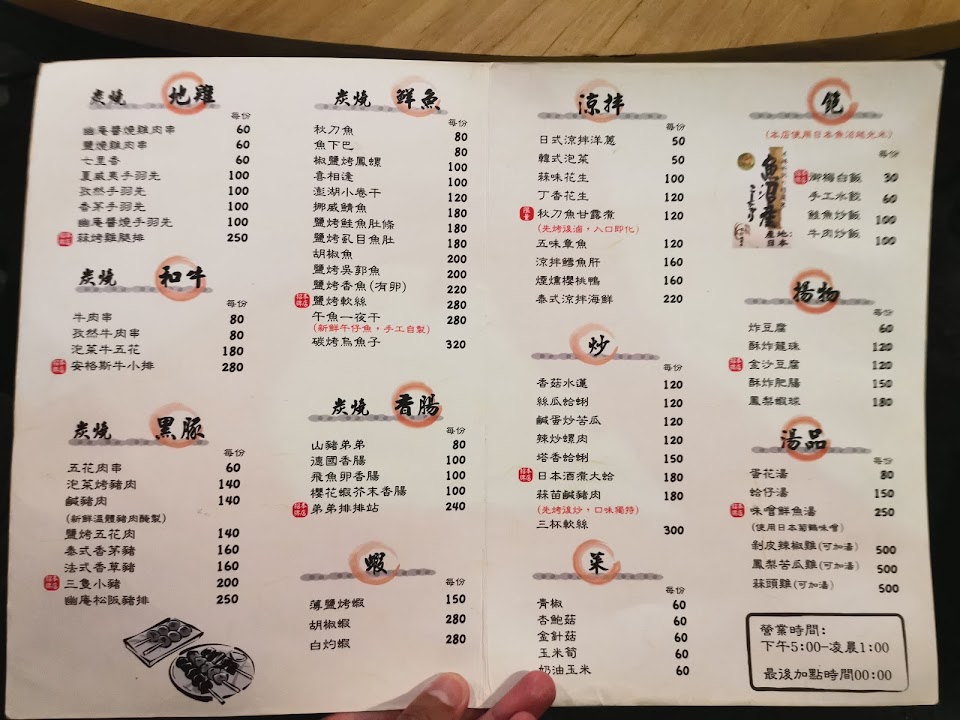 炭燒 地雞
每份
幽庵醬燒雞肉串 60
鹽燒雞肉串 60
七里香 60
夏威夷手羽先 100
孜然手羽先 100
香茅手羽先 100
幽庵醬燒手羽先 100
蒜烤雞腿排 250
炭燒 和牛
每份
牛肉串 80
孜然牛肉串 80
泡菜牛五花 180
安格斯牛小排 280
炭燒 黑豚
每份
五花肉串 60
泡菜烤豬肉 140
鹹豬肉 140
(新鮮溫體豬肉醃製)
鹽烤五花肉 140
泰式香茅豬 160
法式香草豬 160
三隻小豬 200
幽庵松阪豬排 250
炭燒 鮮魚
每份
秋刀魚 80
魚下巴 80
椒鹽烤鳳螺 100
喜相逢 100
澎湖小卷干 120
挪威鯖魚 180
鹽烤鮭魚肚條 180
鹽烤虱目魚肚 180
胡椒魚 200
鹽烤吳郭魚 200
鹽烤香魚(有卵) 220
鹽烤軟絲 280
午魚一夜干 280
(新鮮午仔魚，手工自製)
碳烤烏魚子 320
炭燒 香腸
每份
山豬弟弟 80
德國香腸 100
飛魚卵香腸 100
櫻花蝦芥末香腸 100
弟弟排排站 240
蝦
每份
薄鹽烤蝦 150
胡椒蝦 280
白灼蝦 280
涼拌
每份
日式涼拌洋蔥 50
韓式泡菜 50
蒜味花生 100
丁香花生 120
限量 秋刀魚甘露煮 120
(先烤後滷，入口即化)
五味章魚 120
涼拌鱈魚肝 160
煙燻櫻桃鴨 160
泰式涼拌海鮮 220
炒
每份
香菇水蓮 120
絲瓜蛤蜊 120
鹹蛋炒苦瓜 120
辣炒螺肉 120
塔香蛤蜊 150
日本酒煮大蛤 180
蒜苗鹹豬肉 180
(先烤後炒，口味獨特)
三杯軟絲 300
菜
每份
青椒 60
杏鮑菇 60
金針菇 60
玉米筍 60
奶油玉米 60
飽
(本店使用日本魚沼越光米)
每份
魚沼産
産地:
日本
御梅白飯 30
手工水餃 60
鮭魚炒飯 100
牛肉炒飯 100
揚物
每份
炸豆腐 60
酥炸龍珠 120
金沙豆腐 120
酥炸肥腸 150
鳳梨蝦球 180
湯品
每份
蛋花湯 80
蛤仔湯 150
味噌鮮魚湯 250
(使用日本菊鶴味噌)
剝皮辣椒雞(可加湯) 500
鳳梨苦瓜雞(可加湯) 500
蒜頭雞(可加湯) 500
營業時間:
下午5:00-凌晨1:00
最後加點時間00:00